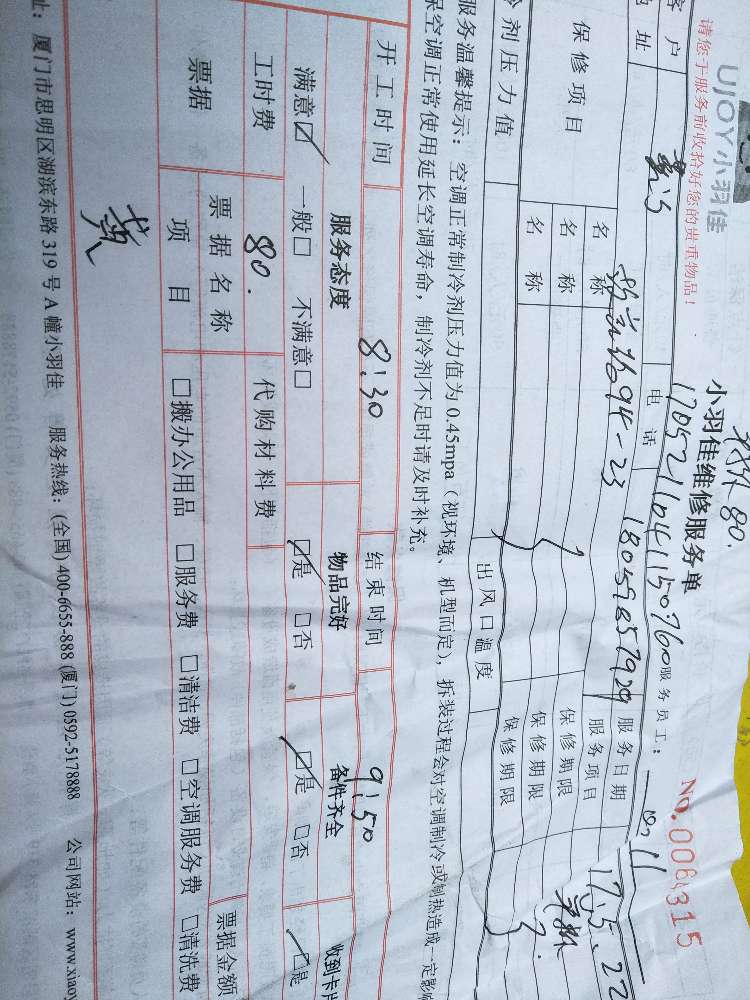 UJOY小羽佳
小羽佳维修服务单
80.
No.
请您于服务前收拾好您的贵重物品!
服务员工:
客户
电话
服务日期
17.5.22
地址
服务项目
保修项目
名称
保修期限
名称
保修期限
名称
保修期限
冷剂压力值
出风口温度
服务温馨提示:空调正常制冷剂压力值为0.45mpa(视环境、机型而定),拆装过程会对空调制冷或制热造成一定影响
保空调正常使用延长空调寿命,制冷剂不足时请及时补充。
开工时间 8:30 结束时间 9:50
服务态度 物品完好 备件齐全 收到卡片
满意☑ 一般□ 不满意□ ☑是 □否 ☑是 □否 ☑是
工时费 80. 代购材料费
票据 票据名称 票据金额
项目 □搬办公用品 □服务费 □清洁费 □空调服务费 □清洗费
黄
址:厦门市思明区湖滨东路319号A幢小羽佳 服务热线:(全国)400-6655-888 (厦门)0592-5178888 公司网站:www.xiaoy